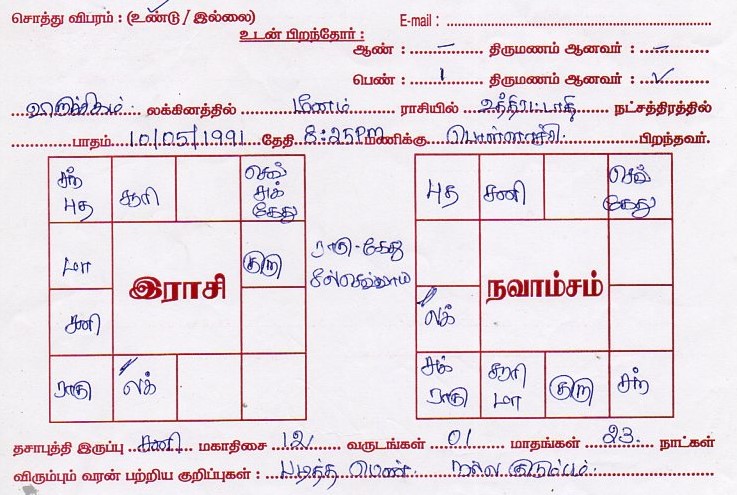 சொத்து விபரம் : (உண்டு / இல்லை) E-mail :
உடன் பிறந்தோர் :
ஆண் : – திருமணம் ஆனவர் : –
பெண் : 1 திருமணம் ஆனவர் : ✓
லக்கினத்தில் மீனம் ராசியில் உத்திரட்டாதி நட்சத்திரத்தில்
பாதம் 10/05/1991 தேதி 8:25PM மணிக்கு பொள்ளாச்சி. பிறந்தவர்.
சந் புத சூரி செவ் சுக் கேது
மா குரு
சனி
ராகு லக்
இராசி
ராகு - கேது
புத சனி செவ் கேது
லக்
சுக் ராகு சூரி மா குரு சந்
நவாம்சம்
தசாபுத்தி இருப்பு சனி மகாதிசை 12 வருடங்கள் 01 மாதங்கள் 23 நாட்கள்
விரும்பும் வரன் பற்றிய குறிப்புகள் : படித்த பெண். நல்ல குடும்பம்.